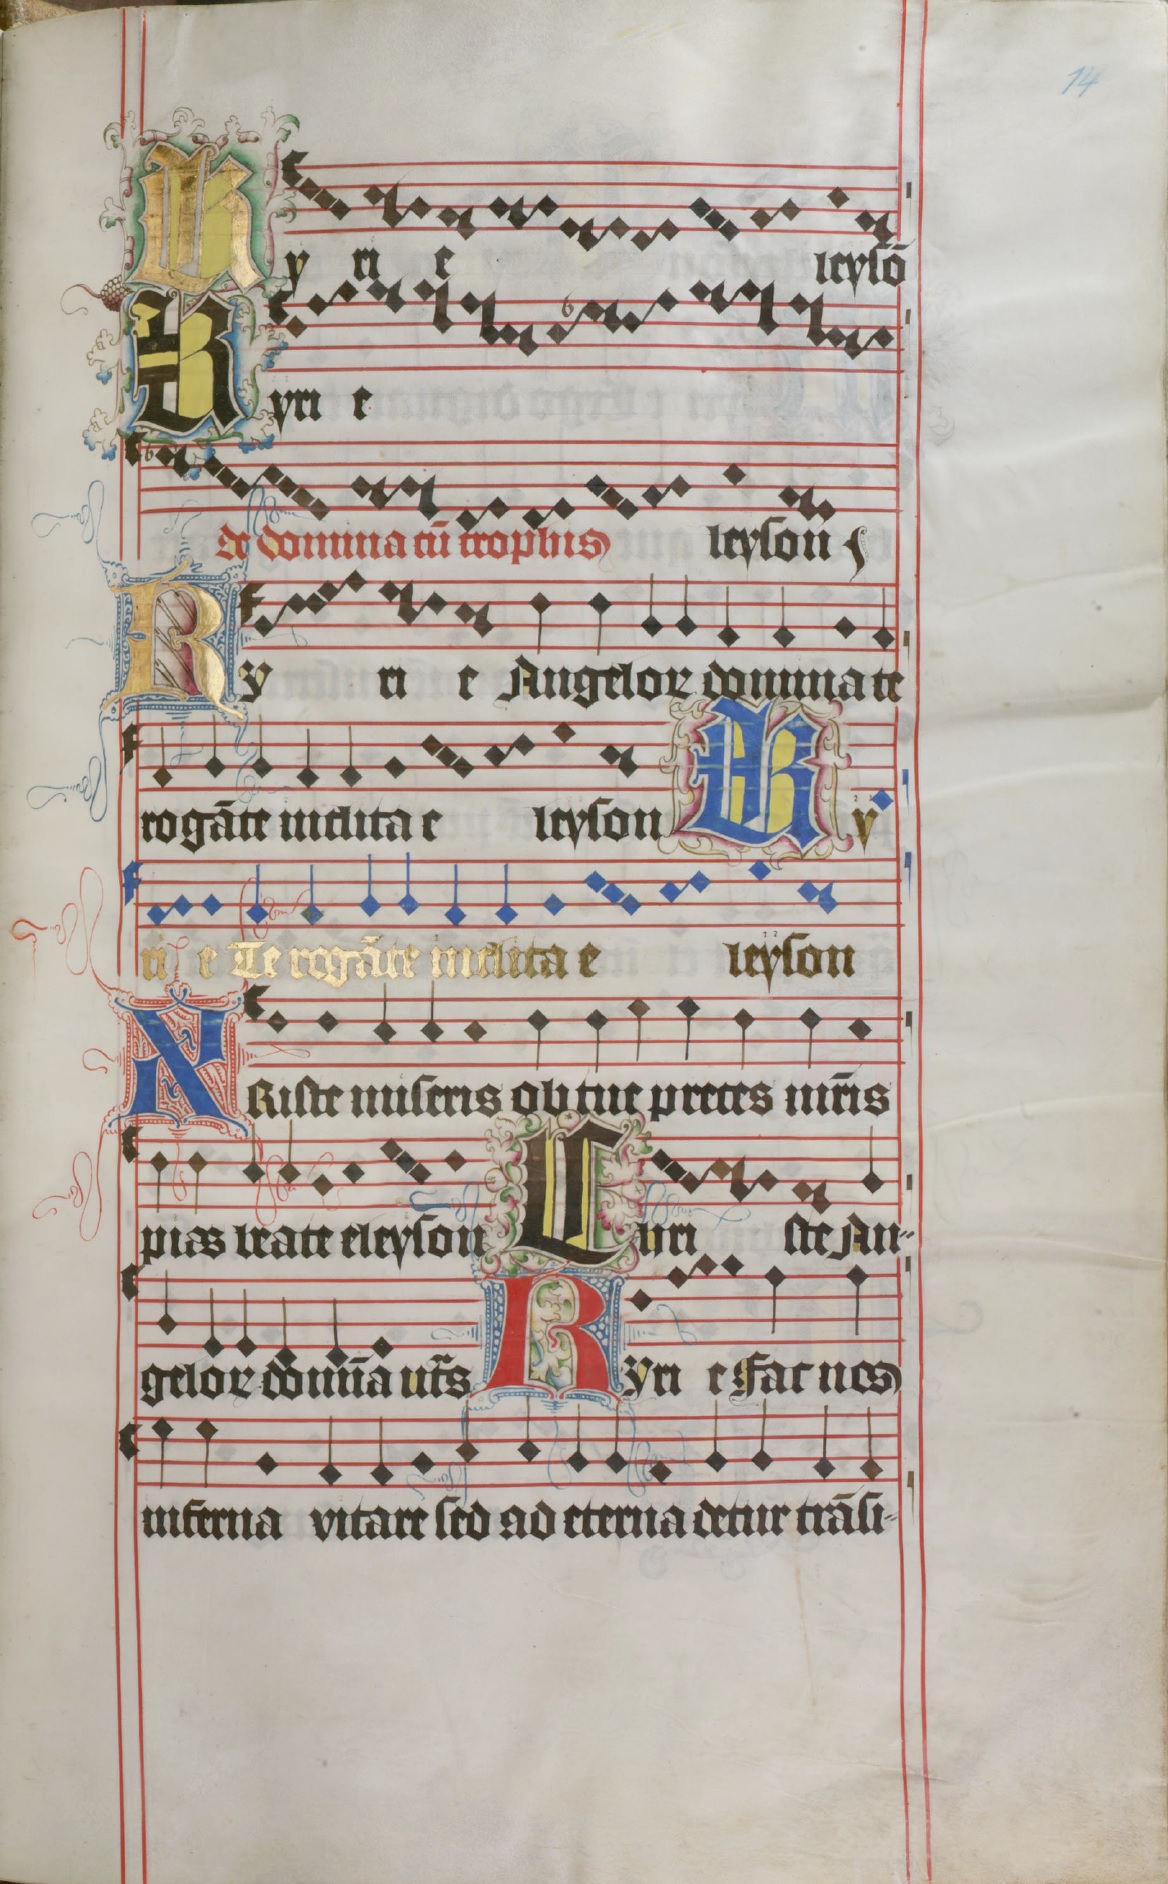 14
Ky ri e leysō
Kyri e
de domina cū trophis leyson
Ky ri e Angelor domina te
rogāte inclita e leyson Ky
ri e Te rogāte inclita e leyson
XRiste miseris ob tue preces mr̄is
pias beate eleyson Chri ste An-
gelor domīa Kyri e Fac nos
inferna vitare sed ad eterna detur trāsi-